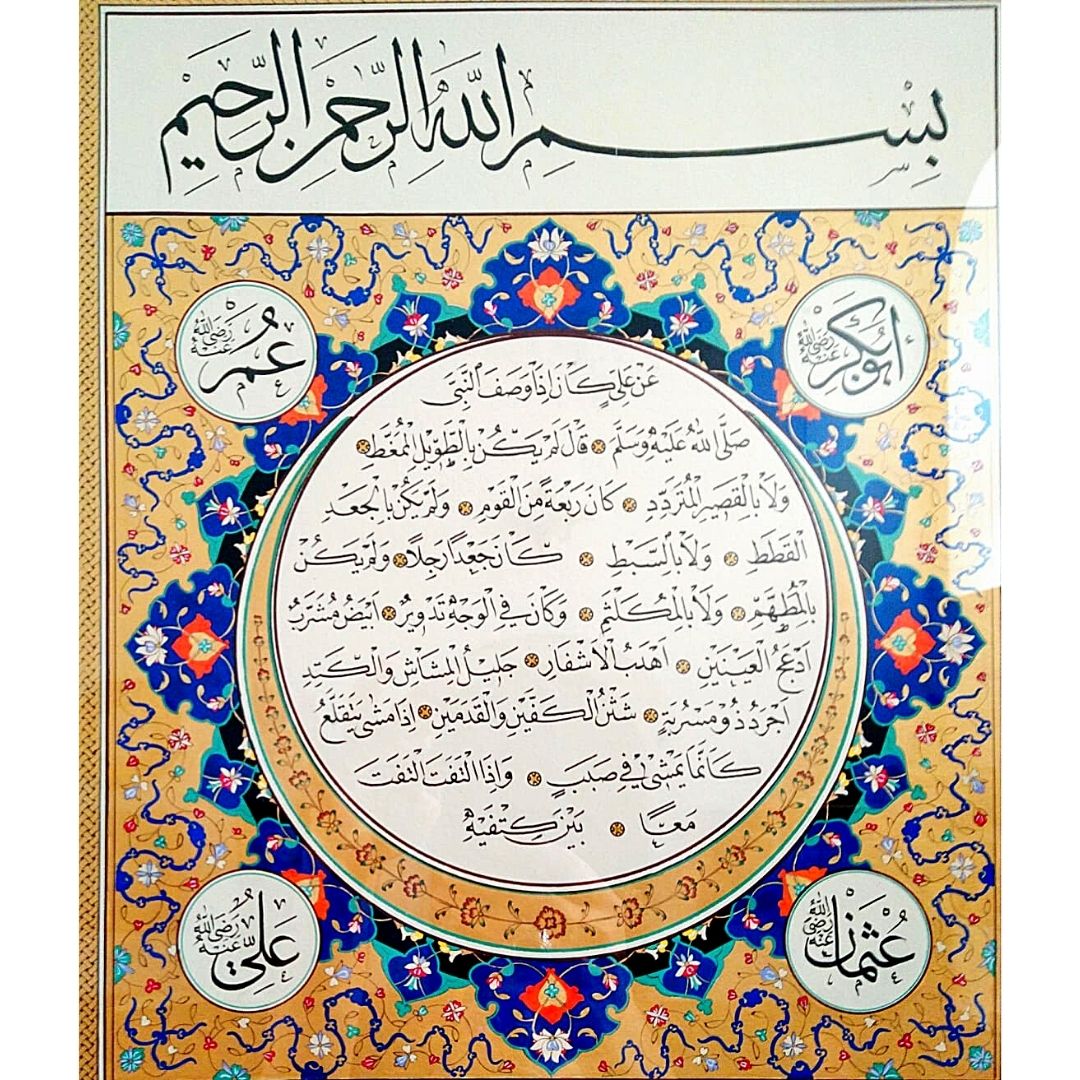 بِسْمِ اللّٰهِ الرَّحْمٰنِ الرَّحِيمِ
أبو بكر رَضِيَ اللّٰهُ عَنْهُ
عُمَر رَضِيَ اللّٰهُ عَنْهُ
عَنْ عَلِيٍّ كَانَ اِذَا وَصَفَ النَّبِيَّ
صَلَّى اللّٰهُ عَلَيْهِ وَسَلَّمَ قَالَ لَمْ يَكُنْ بِالطَّوِيلِ الْمُمَّغِطِ
وَلَا بِالْقَصِيرِ الْمُتَرَدِّدِ كَانَ رَبْعَةً مِنَ الْقَوْمِ وَلَمْ يَكُنْ بِالْجَعْدِ
الْقَطَطِ وَلَا بِالسَّبْطِ كَانَ جَعْدًا رَجِلًا وَلَمْ يَكُنْ
بِالْمُطَهَّمِ وَلَا بِالْمُكَلْثَمِ وَكَانَ فِي الْوَجْهِ تَدْوِيرٌ اَبْيَضُ مُشْرَبٌ
اَدْعَجُ الْعَيْنَيْنِ اَهْدَبُ الْاَشْفَارِ جَلِيلُ الْمُشَاشِ وَالْكَتِدِ
اَجْرَدُ ذُو مَسْرُبَةٍ شَثْنُ الْكَفَّيْنِ وَالْقَدَمَيْنِ اِذَا مَشٰى يَتَقَلَّعُ
كَاَنَّمَا يَمْشِي فِي صَبَبٍ وَاِذَا الْتَفَتَ الْتَفَتَ
مَعًا بَيْنَ كَتِفَيْهِ
عُثْمَان رَضِيَ اللّٰهُ عَنْهُ
عَلِيّ رَضِيَ اللّٰهُ عَنْهُ